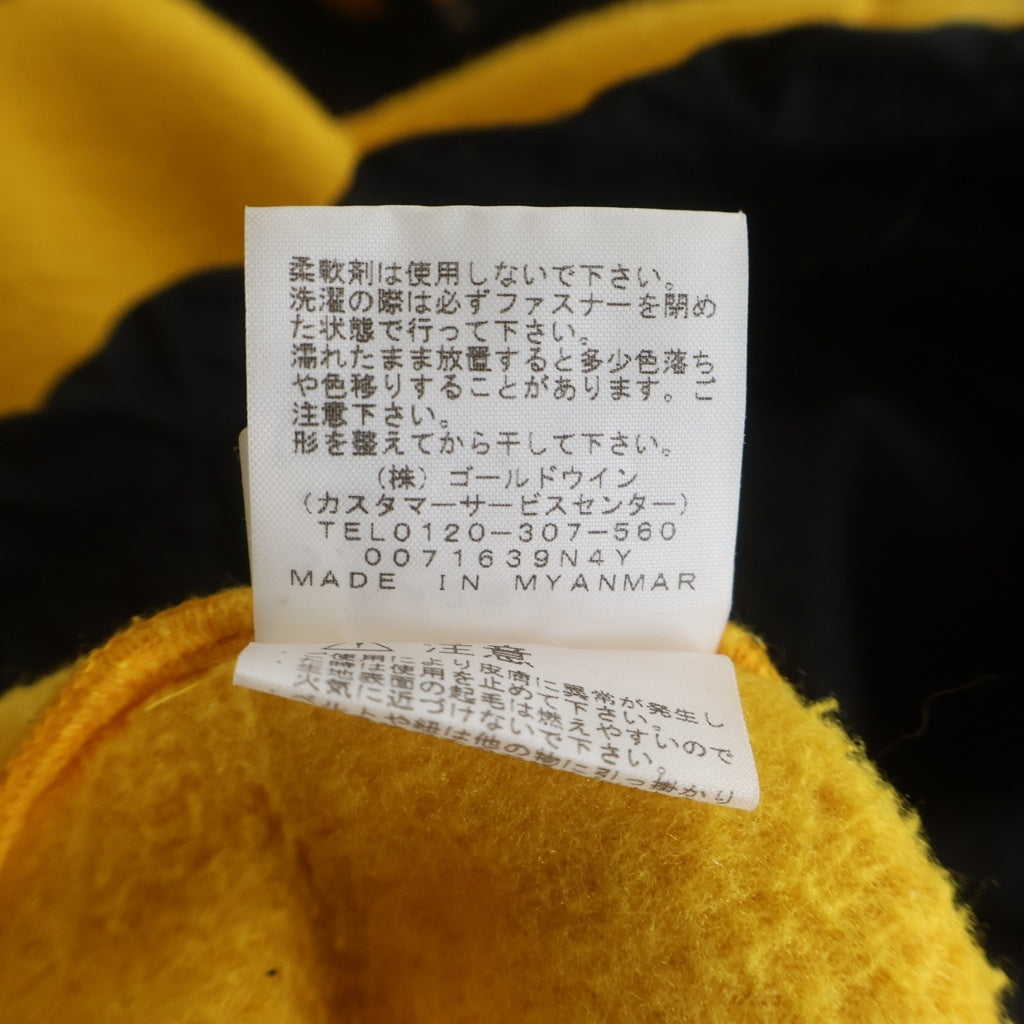 柔軟剤は使用しないで下さい。
洗濯の際は必ずファスナーを閉め
た状態で行って下さい。
濡れたまま放置すると多少色落ち
や色移りすることがあります。ご
注意下さい。
形を整えてから干して下さい。
(株) ゴールドウイン
(カスタマーサービスセンター)
TEL0120-307-560
0071639N4Y
MADE IN MYANMAR
注意
皮膚に異常が発生し
止めて下さい。
起毛は燃えやすいので
火気に近づけないで下さい。
や紐は他の物に引っ掛かり